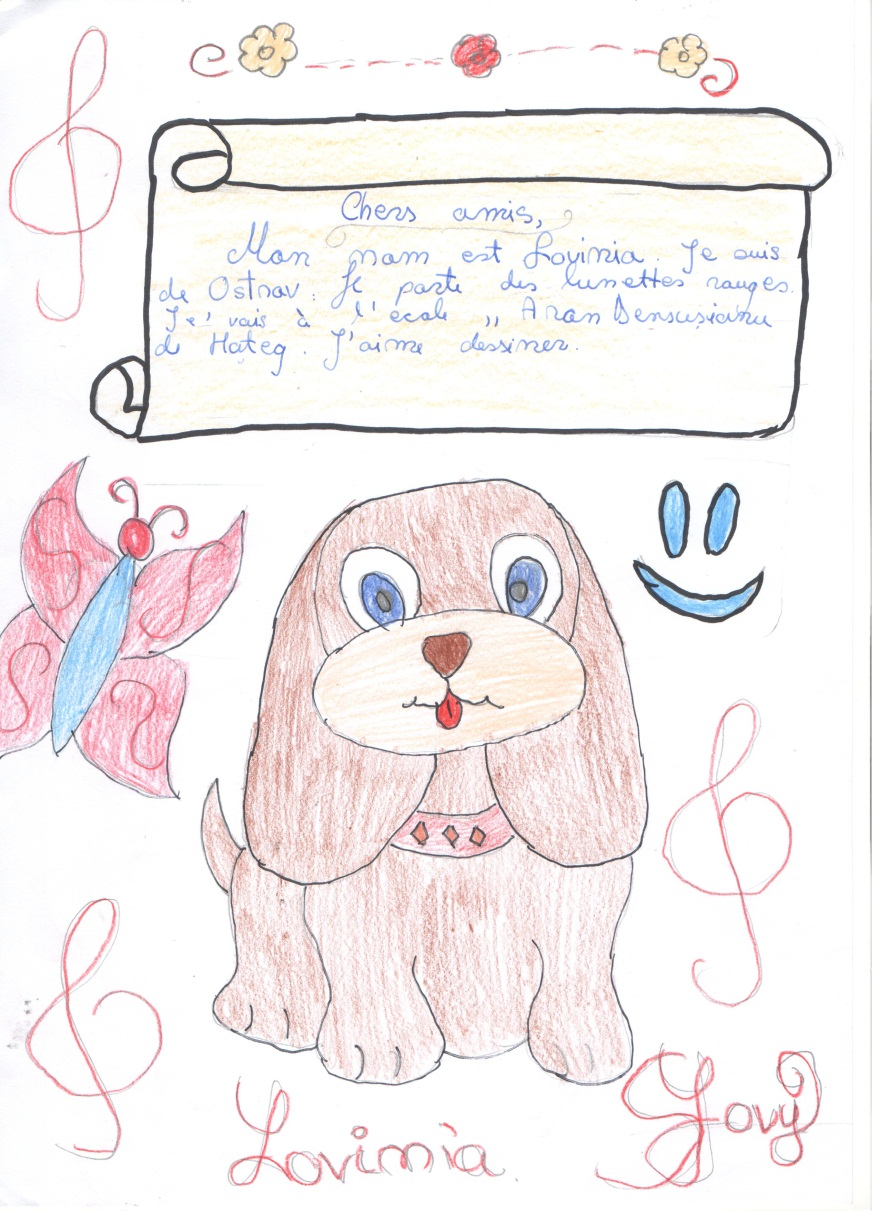 Chers amis,
Mon nom est Lovinia. Je suis
de Ostrov. Je porte des lunettes rouges.
Je' vais à l'école „ Aron Densusianu
d Hateg. J'aime dessiner.
Lovinia
Lovy